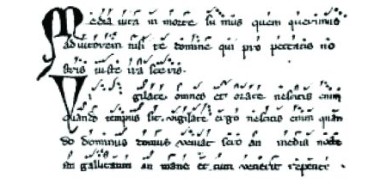 Media uita in morte su mus quem querimus
adiutorem nisi te domine qui pro peccatis no
stris iuste irasceris.
Vigilate omnes et orate nescitis enim
quando tempus sit. vigilate ergo nescitis enim quan
do dominus domus veniat sero an media nocte
an gallicantu an mane et cum venerit repente